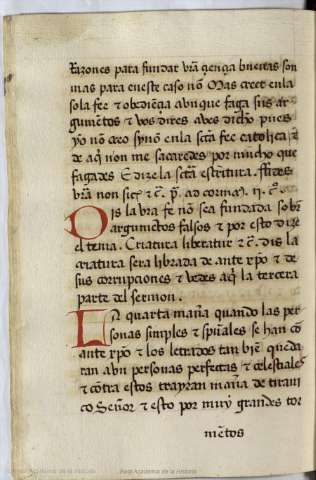 Razones para fundar vr̃a çiençia buenas son
mas para en este caso nõ. Mas creer en la
sola fee & obediençia avn que faga sus ar
gumẽtos & vos dires aves dicho pues
yo nõ creo synõ en la sctã fee catolica &
de aq̃l non me sacaredes por mucho que
fagades E dize la sctã escritura. ffides
vr̃a non sit &c̃. p̃. ad corintios. ii. cº.
Dis la vr̃a fe nõ sea fundada sobr̃
argumẽtos falsos & por esto dize
el tema. Criatura liberatur &c̃. dis la
criatura sera librada de ante xp̃o & de
sus corrupçiones & vedes aq̃l la terçera
parte del sermon.
La quarta mañia quando las per
sonas simples & spũales se han cõ
ante xp̃o & los letrados tan biẽ queda
ran avn personas perfectas & çelestiales
& cõtra estos trayran mañia de tirani
co Señor & esto por muy grandes tor
mẽtos
Real Academia de la Historia